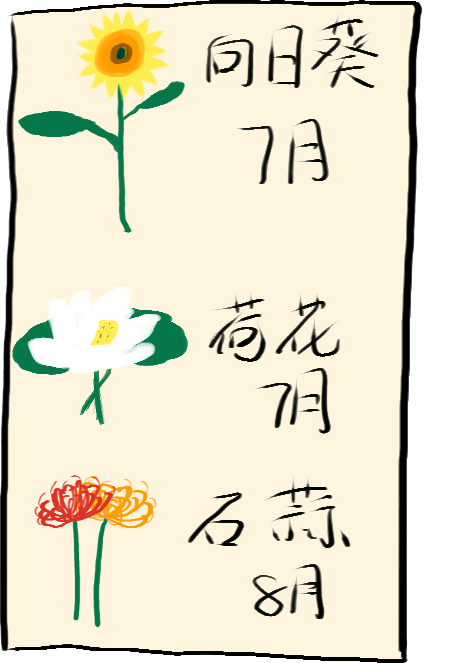 向日葵
7月
荷花
7月
石蒜
8月